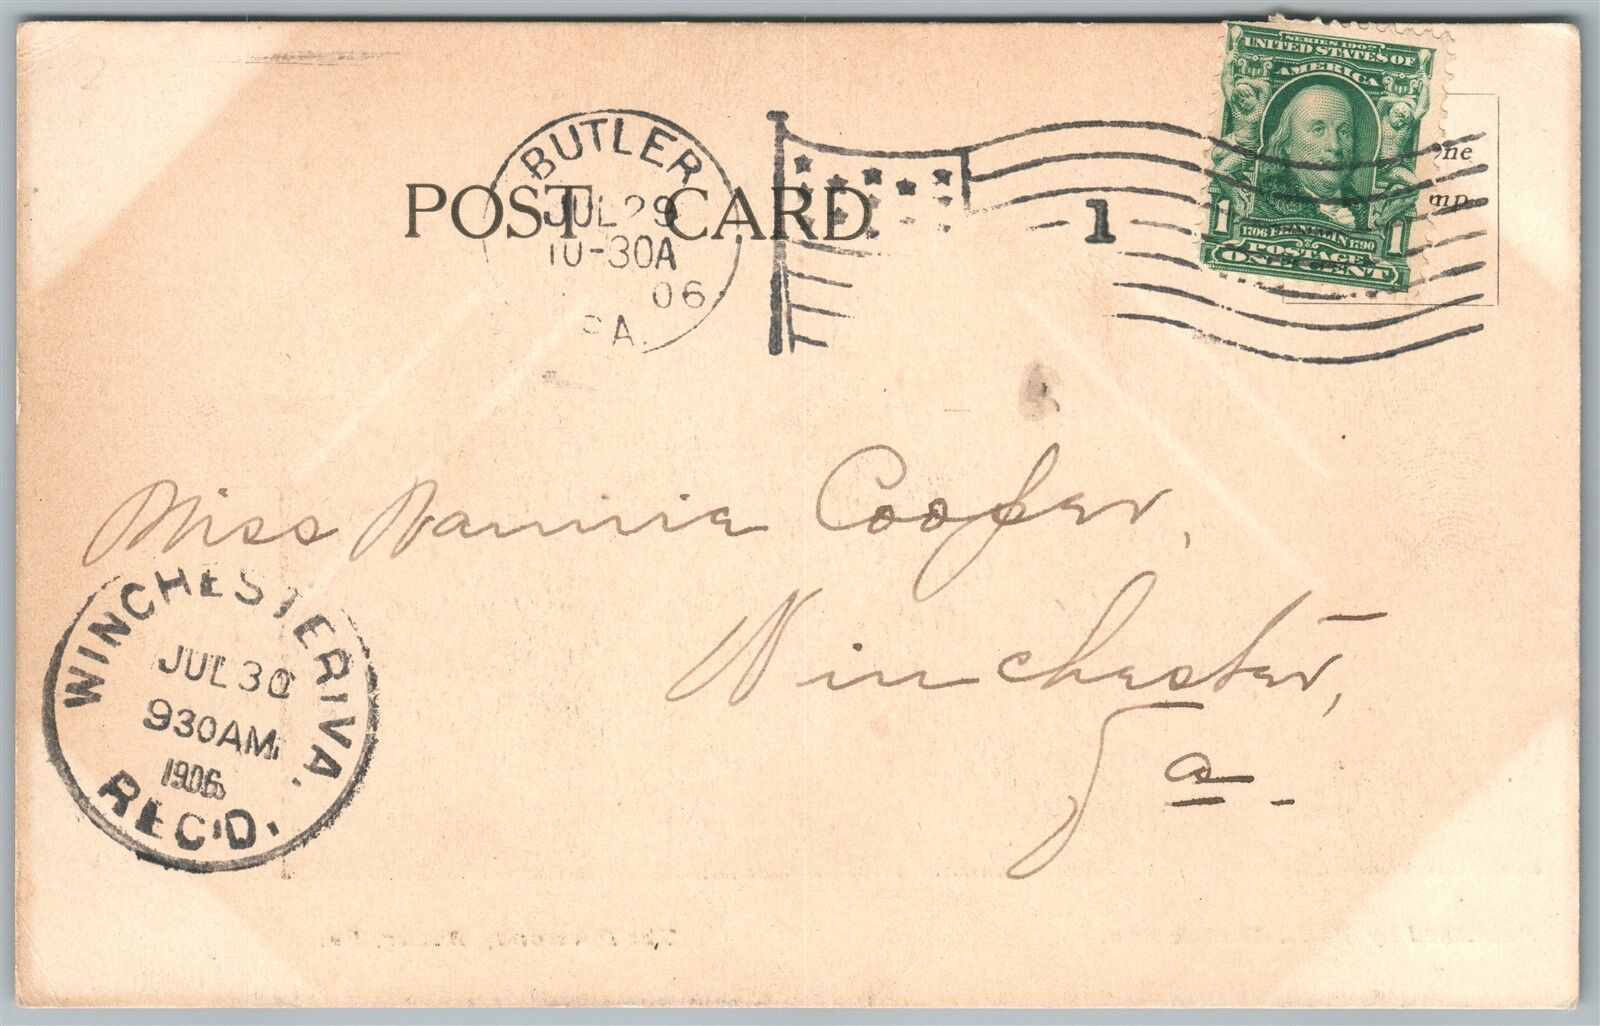 SERIES 1902
UNITED STATES OF
AMERICA
1 1
1706 FRANKLIN 1790
POSTAGE
ONE CENT
ne
mp
BUTLER
JUL 29
10-30A
06
PA.
1
POST CARD
Miss Nannie Cooper,
Winchester,
Va.
WINCHESTER, VA.
JUL 30
930AM
1906
REC'D.